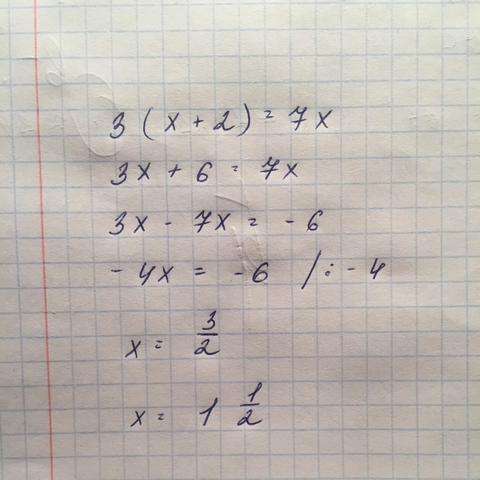 3 (x + 2) = 7x
3x + 6 = 7x
3x - 7x = -6
-4x = -6 /: -4
x = 3/2
x = 1 1/2